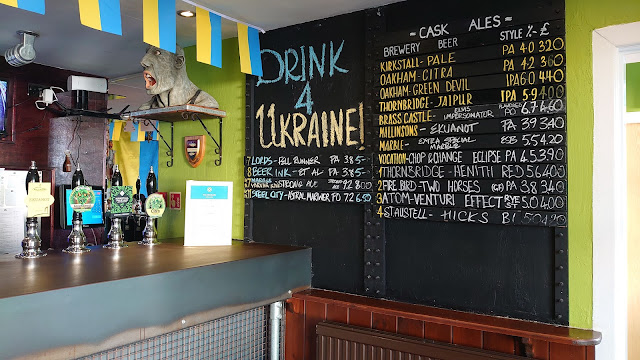 DRINK
4
UKRAINE!
7 LORDS - PALE RUNNER PA 3.8 5-
8 BEER INK - ET AL PA 3.8 5-
STRONG ALE 7.2 8.00
STEEL CITY - PO 7.2 6.50
- CASK ALES -
BREWERY BEER STYLE % £
KIRKSTALL - PALE PA 4.0 3.20
OAKHAM - CITRA PA 4.2 3.60
OAKHAM - GREEN DEVIL IPA 6.0 4.40
THORNBRIDGE - JAIPUR IPA 5.9 4.00
BRASS CASTLE - ELVIS IMPERSONATOR 6.7 4.60
MILLINSONS - EKUANOT PA 3.9 3.40
MARBLE - EXTRA SPECIAL MARBLE ESB 5.5 4.20
VOCATION - CHOP & CHANGE ECLIPSE PA 4.5 3.90
1 THORNBRIDGE - HENITH RED 5.6 4.00
2 FIRE BIRD - TWO HORSES PA 3.8 3.40
3 ATOM - VENTURI EFFECT RYE 5.0 4.00
4 ST. AUSTELL - HICKS BI 5.0 4.20